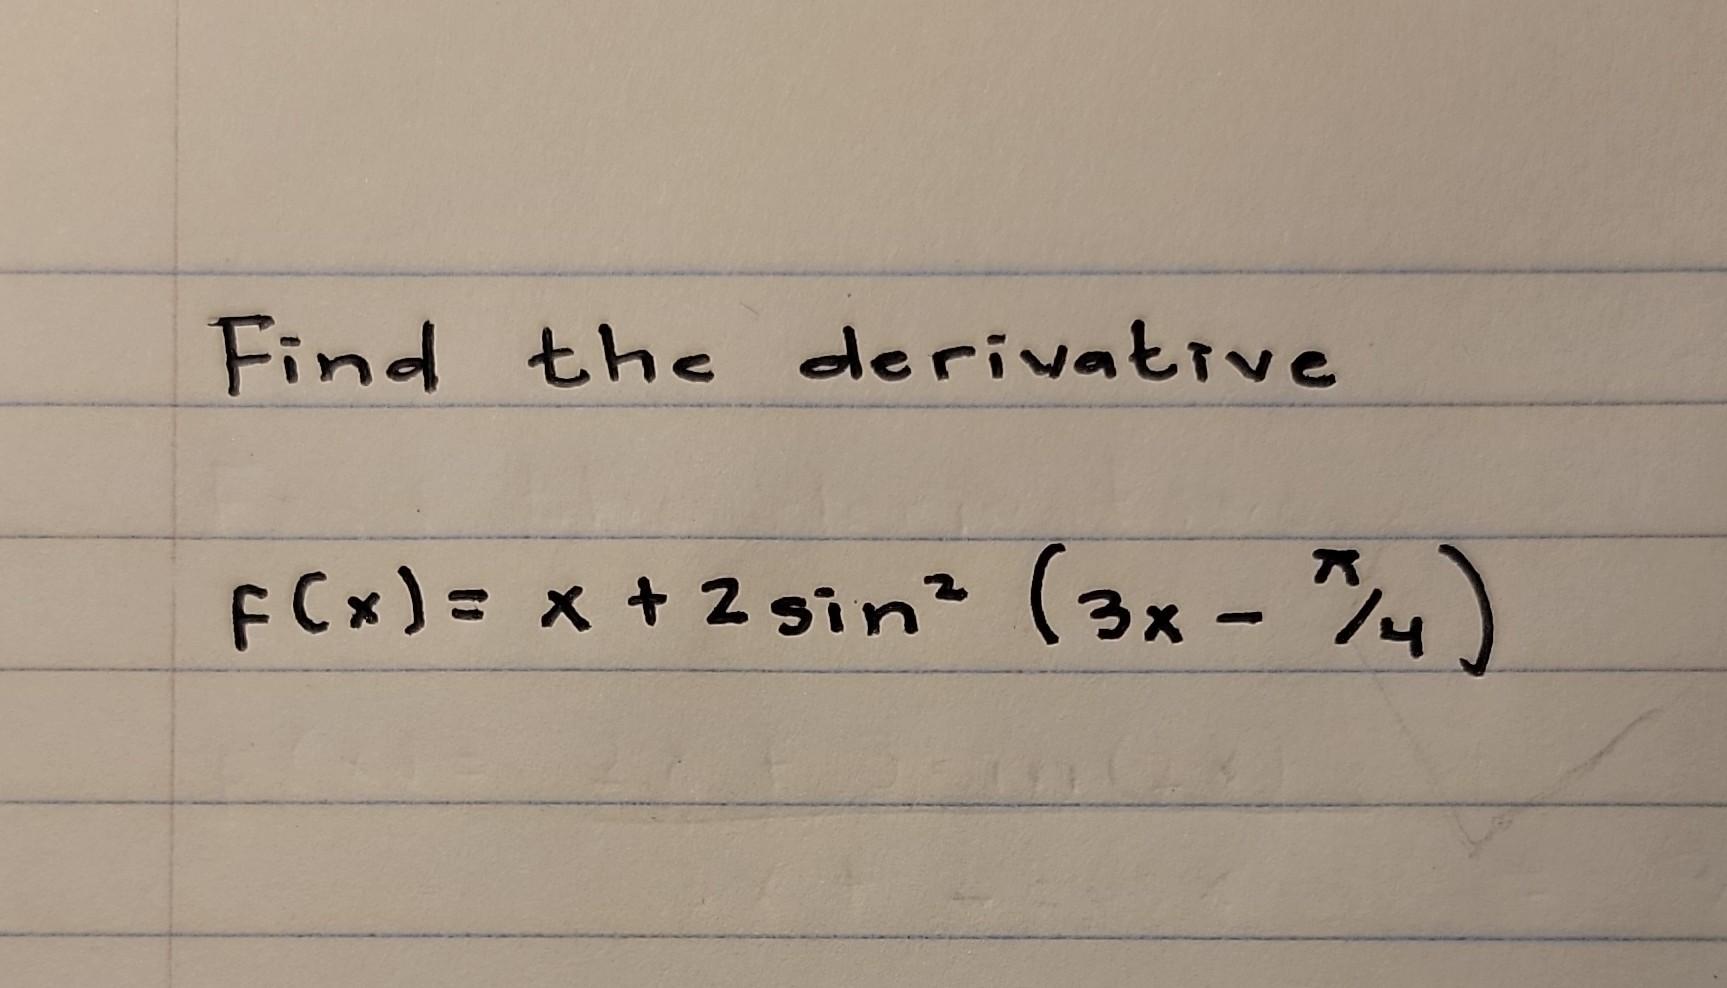 Find the derivative
F(x) = x + 2 sin² (3x - π/4)